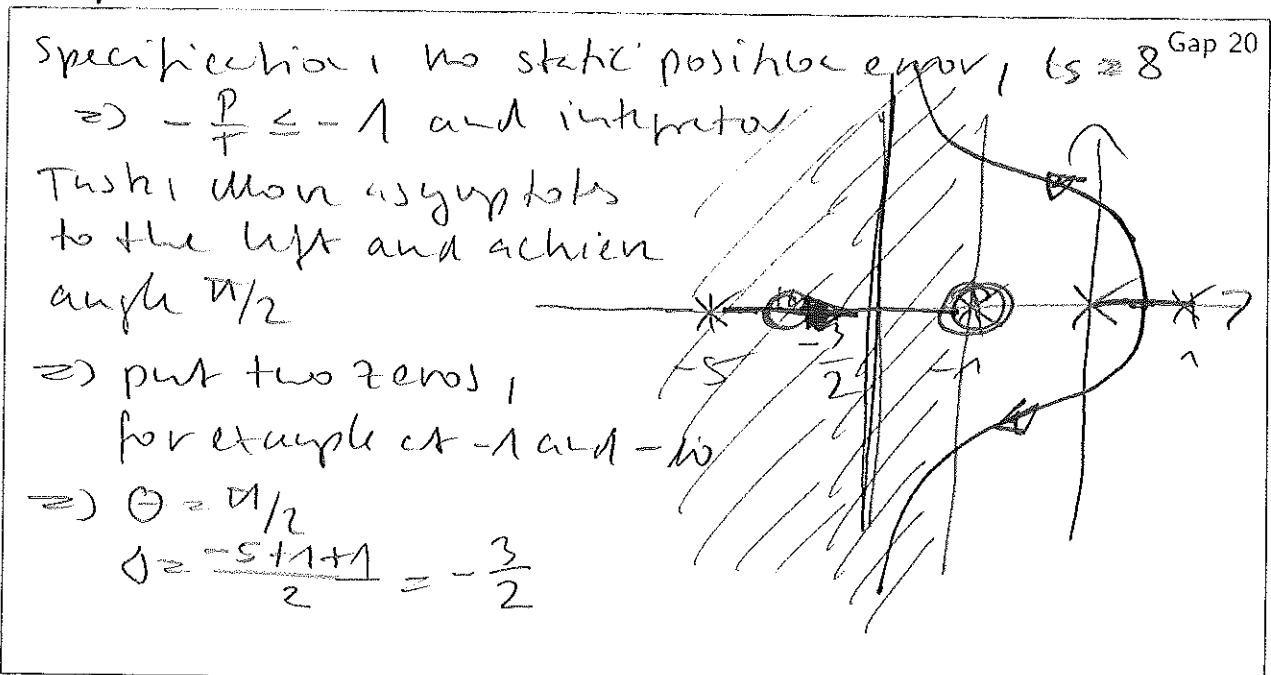 Gap 20
Specification, no static position error, ts = 8
=> - P/T ≤ -1 and integrator
Task, Move asymptotes
to the left and achieve
angle π/2
=> put two zeros,
for example at -1 and
=> Θ = π/2
δ = (-5+1+1)/2 = -3/2
-5 -3/2 -1 1